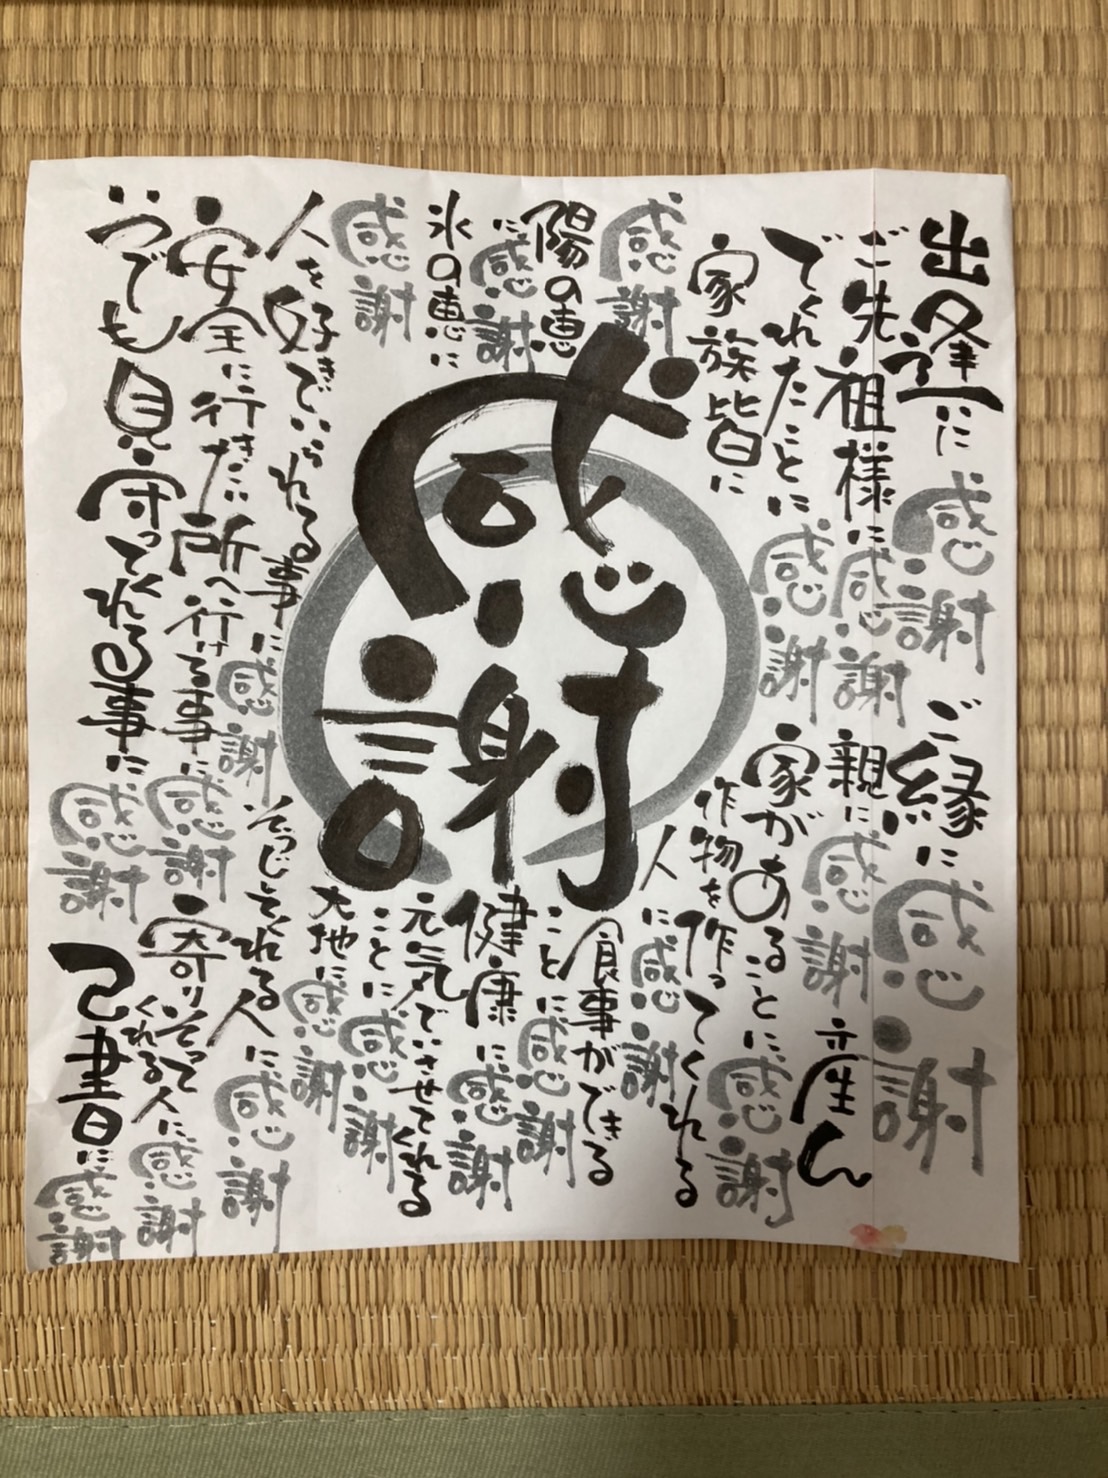 出逢いに感謝
ご縁に感謝
ご先祖様に感謝
親に感謝
産ん
でくれたことに感謝
家があることに感謝
家族皆に
感謝
作物を作ってくれる
人に感謝
陽の恵
に感謝
食事ができる
ことに感謝
水の恵に
感謝
健康に感謝
元気でいさせてくれる
ことに感謝
大地に感謝
感謝
人を好きでいられる事に感謝
そっじそれる人に感謝
安全に行きたい所へ行ける事に感謝
寄りそって
くれる人に感謝
いつでも見守ってくれる事に感謝
己書に感謝